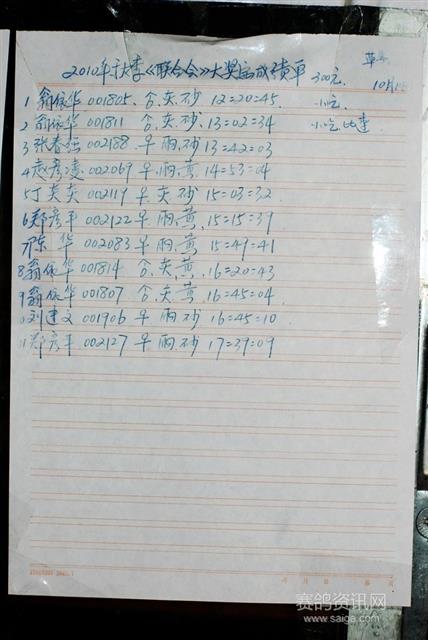 2010年秋季《联合会》大奖赛成绩单 300元
10月
1 翁依华 001805 合.灰.砂 12=20=45 小吃
2 翁依华 001811 合.灰.砂 13=02=34 小吃
3 张春 002188 早 雨.砂 13=42=03
4 赵彦凌 002069 早 雨.黄 14=53=04
5 丁美英 002119 早.灰.砂. 15=03=32
6 郑彦平 002122 早 雨.黄. 15=15=39
7 陈华 002083 早 雨.黄. 15=49=41
8 翁依华 001814 合.灰.黄. 16=20=43
9 翁依华 001807 合.灰.黄. 16=45=04
刘建文 001906 早 雨.砂 16=45=10
郑彦平 002127 早 雨.砂 17=39=09
赛鸽资讯网
www.saiga.com